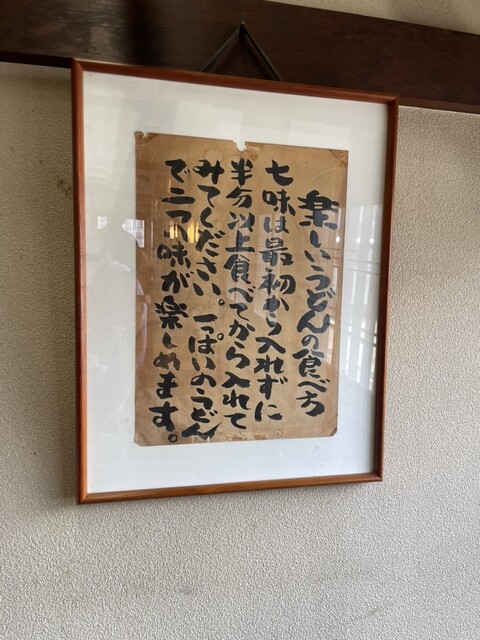 楽しいうどんの食べ方
七味は最初から入れずに
半分以上食べてから入れて
みてください。一ぱいのうどん
で二つの味が楽しめます。